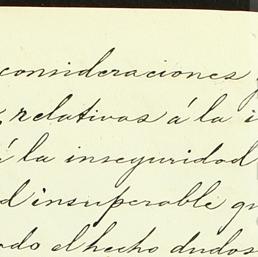 consideraciones
relativas á la i
á la inseguridad
d insuperable qu
odo el hecho dudos